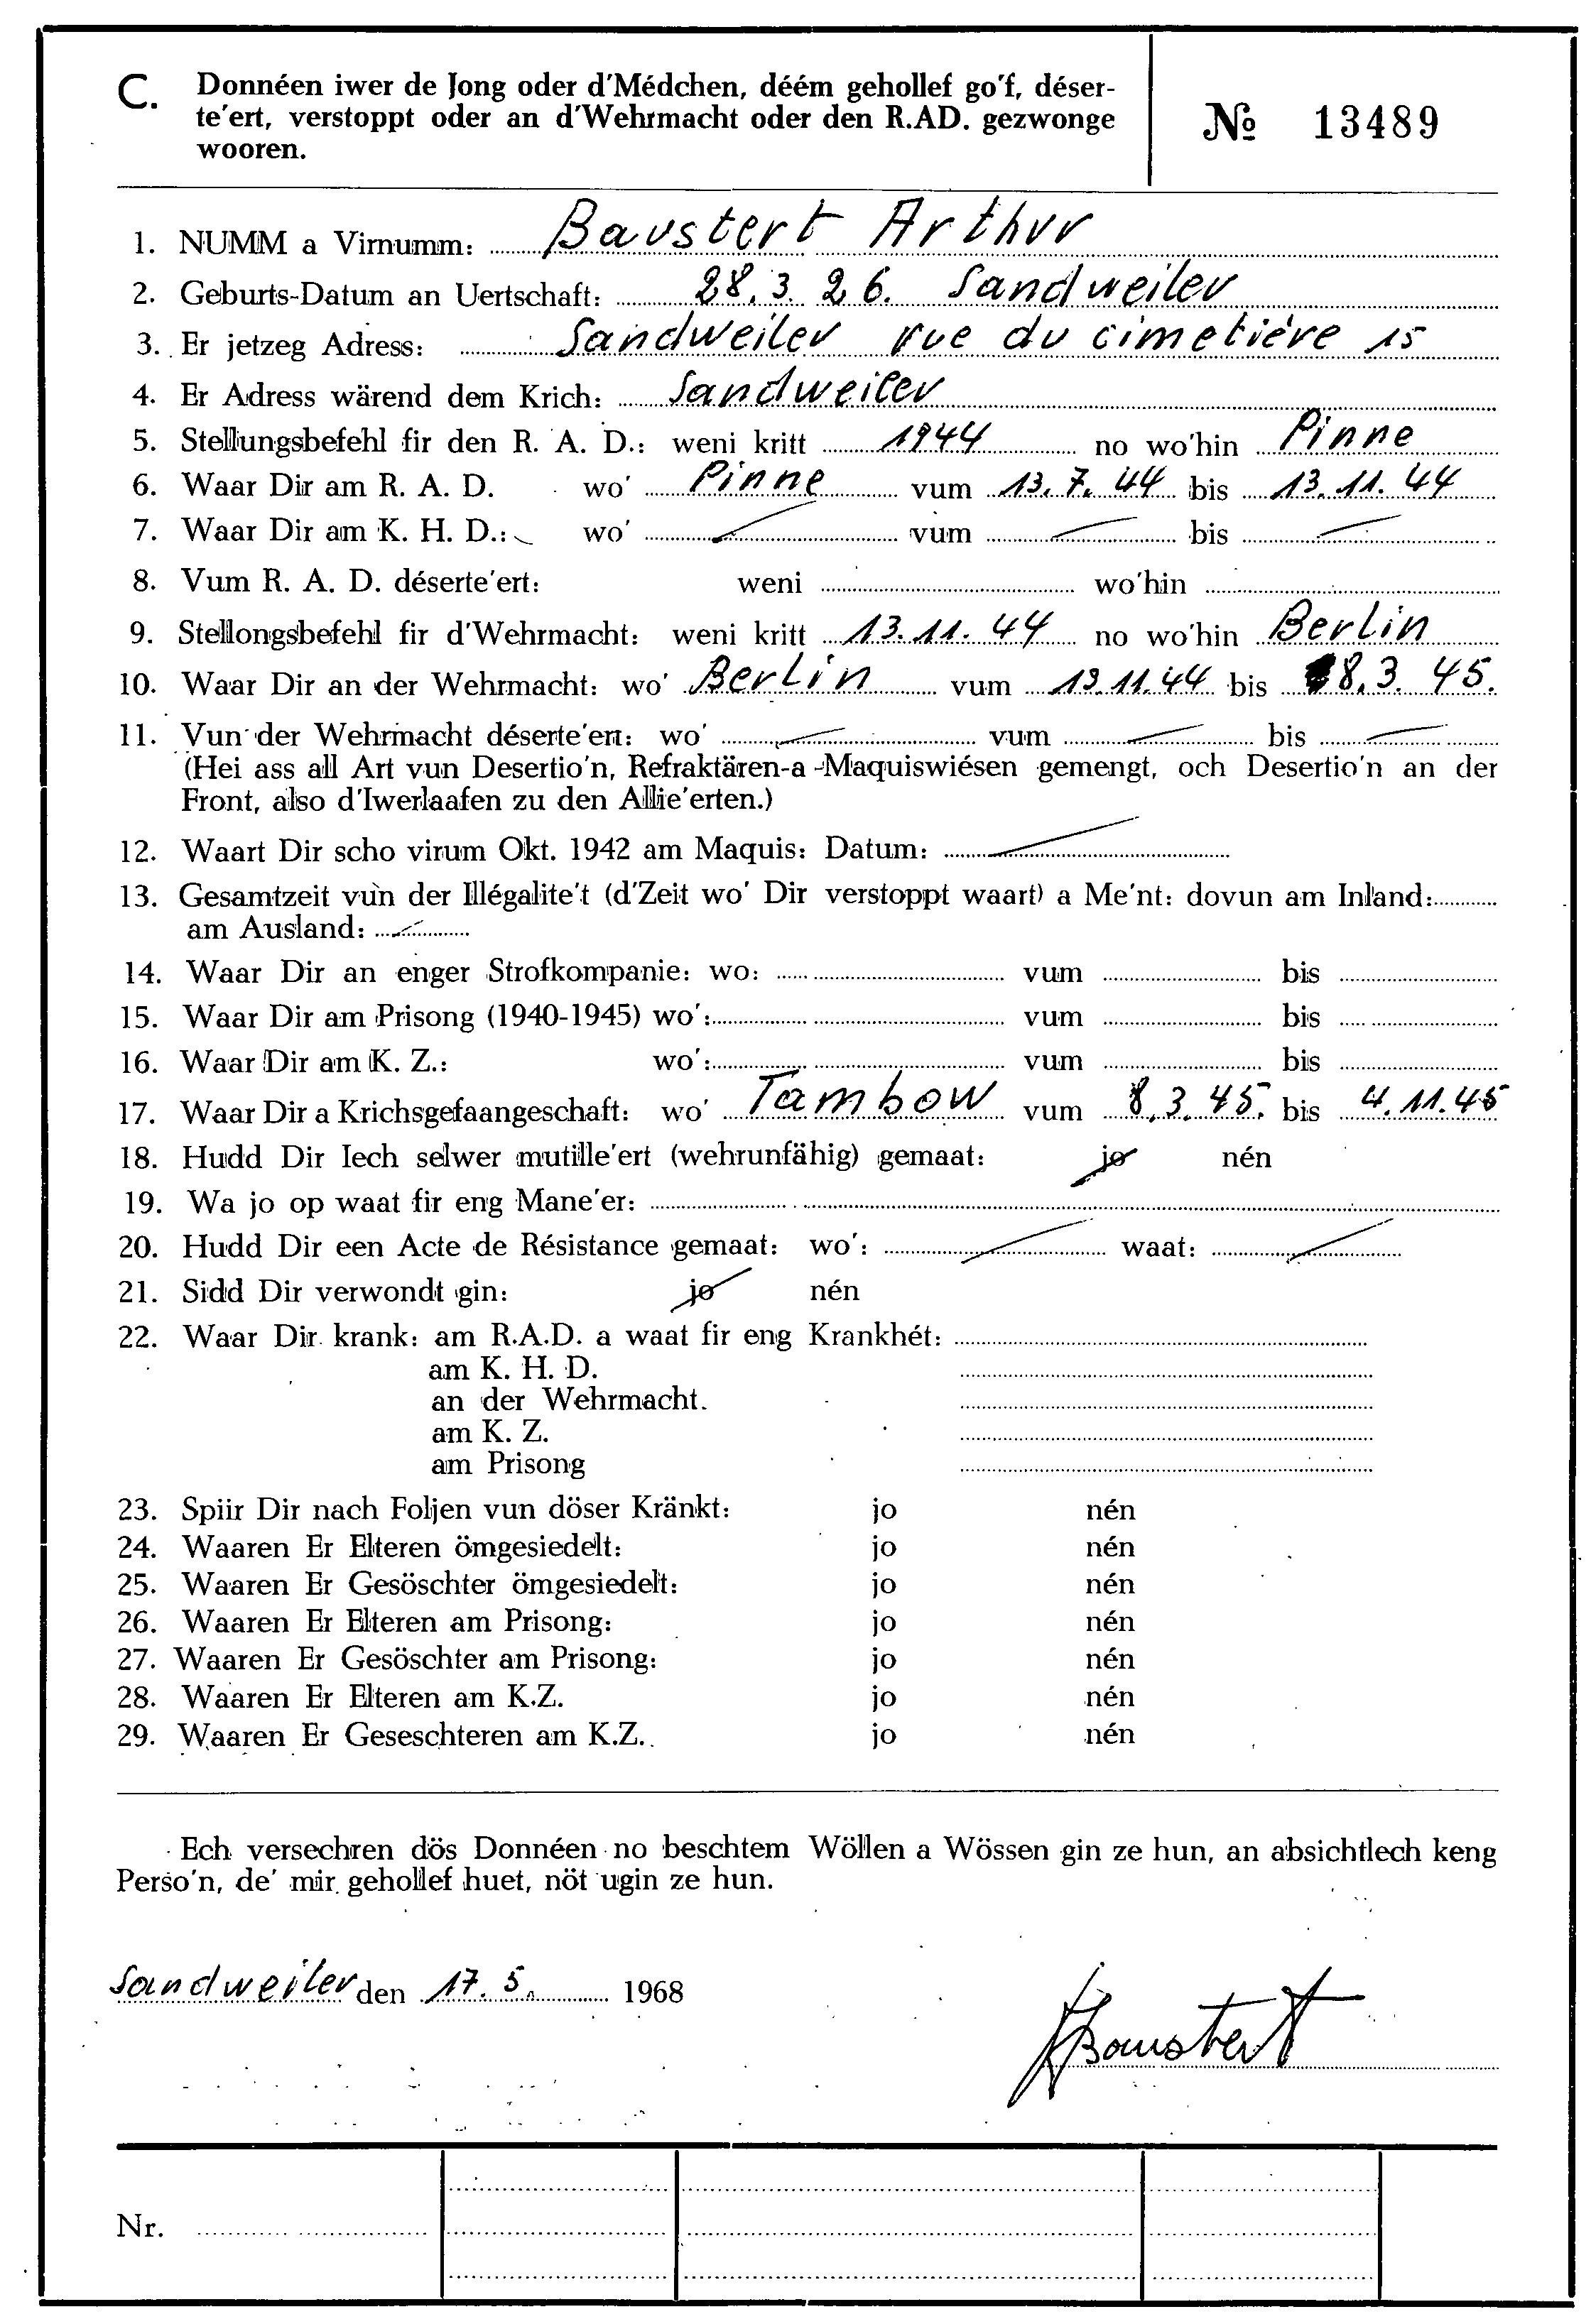 C. Donnéen iwer de Jong oder d'Médchen, déém gehollef go'f, déser-
te'ert, verstoppt oder an d'Wehrmacht oder den R.AD. gezwonge
wooren.
№ 13489
1. NUMM a Virnumm: Baustert Arthur
2. Geburts-Datum an Uertschaft: 28.3.26. Sandweiler
3. Er jetzeg Adress: Sandweiler rue du cimetière 15
4. Er Adress wärend dem Krich: Sandweiler
5. Stellungsbefehl fir den R. A. D.: weni kritt 1944 no wo'hin Pinne
6. Waar Dir am R. A. D. wo' Pinne vum 13.7.44 bis 13.11.44
7. Waar Dir am K. H. D.: wo' vum bis
8. Vum R. A. D. déserte'ert: weni wo'hin
9. Stellongsbefehl fir d'Wehrmacht: weni kritt 13.11.44 no wo'hin Berlin
10. Waar Dir an der Wehrmacht: wo' Berlin vum 13.11.44 bis 8.3.45.
11. Vun der Wehrmacht déserte'ert: wo' vum bis
(Hei ass all Art vun Desertio'n, Refraktären-a-Maquiswiésen gemengt, och Desertio'n an der
Front, also d'Iwerlaafen zu den Allie'erten.)
12. Waart Dir scho virum Okt. 1942 am Maquis: Datum:
13. Gesamtzeit vun der Illégalite't (d'Zeit wo' Dir verstoppt waart) a Me'nt: dovun am Inland:
am Ausland:
14. Waar Dir an enger Strofkompanie: wo: vum bis
15. Waar Dir am Prisong (1940-1945) wo': vum bis
16. Waar Dir am K. Z.: wo': vum bis
17. Waar Dir a Krichsgefaangeschaft: wo' Tambow vum 8.3.45. bis 4.11.45
18. Hudd Dir Iech selwer mutille'ert (wehrunfähig) gemaat: jo nén
19. Wa jo op waat fir eng Mane'er:
20. Hudd Dir een Acte de Résistance gemaat: wo': waat:
21. Sidd Dir verwondt gin: jo nén
22. Waar Dir krank: am R.A.D. a waat fir eng Krankhét:
am K. H. D.
an der Wehrmacht.
am K. Z.
am Prisong
23. Spiir Dir nach Foljen vun döser Kränkt: jo nén
24. Waaren Er Elteren ömgesiedelt: jo nén
25. Waaren Er Gesöschter ömgesiedelt: jo nén
26. Waaren Er Elteren am Prisong: jo nén
27. Waaren Er Gesöschter am Prisong: jo nén
28. Waaren Er Elteren am K.Z. jo nén
29. Waaren Er Geseschteren am K.Z. jo nén
Ech versechren dös Donnéen no beschtem Wöllen a Wössen gin ze hun, an absichtlech keng
Perso'n, de' mir gehollef huet, nöt ugin ze hun.
Sandweiler den 17.5. 1968
Baustert
Nr.